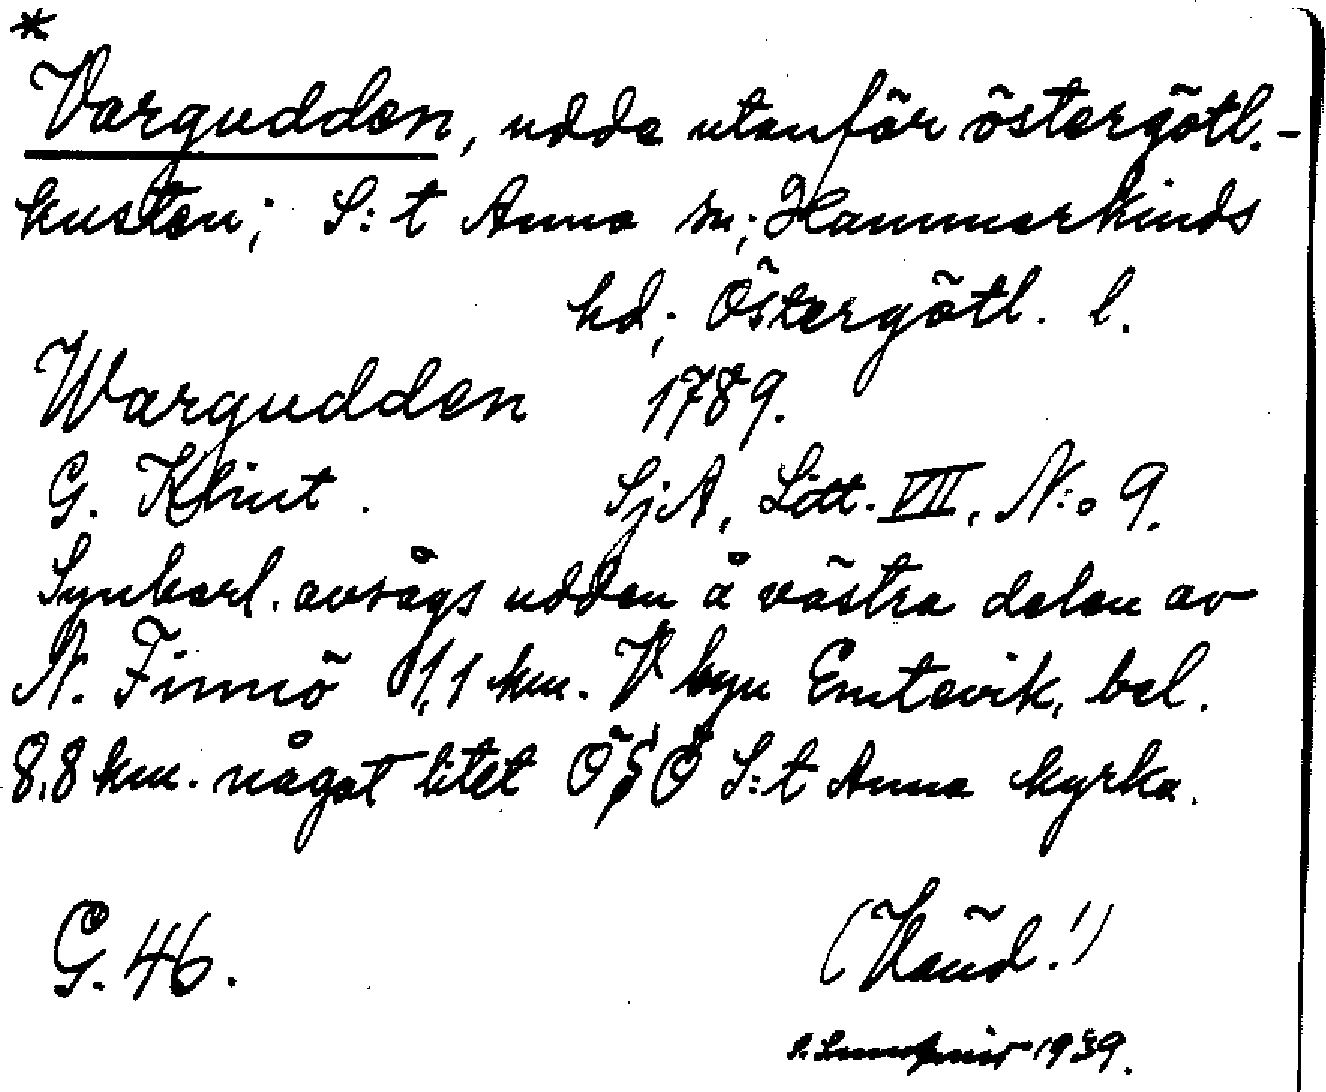 *
Vargudden, udde utanför östergötl.-
kusten; S:t Anna sn; Hammarkinds
hd; Östergötl. l.
Wargudden 1789.
G. Klint. SjA, Litt. VII, N:o 9.
Synbarl. avsågs udden å västra delen av
N. Finnö 1,1 km. V byn Emtevik, bel.
8,8 km. något litet ÖSÖ S:t Anna kyrka.
G. 46. (Känd!)
1939.